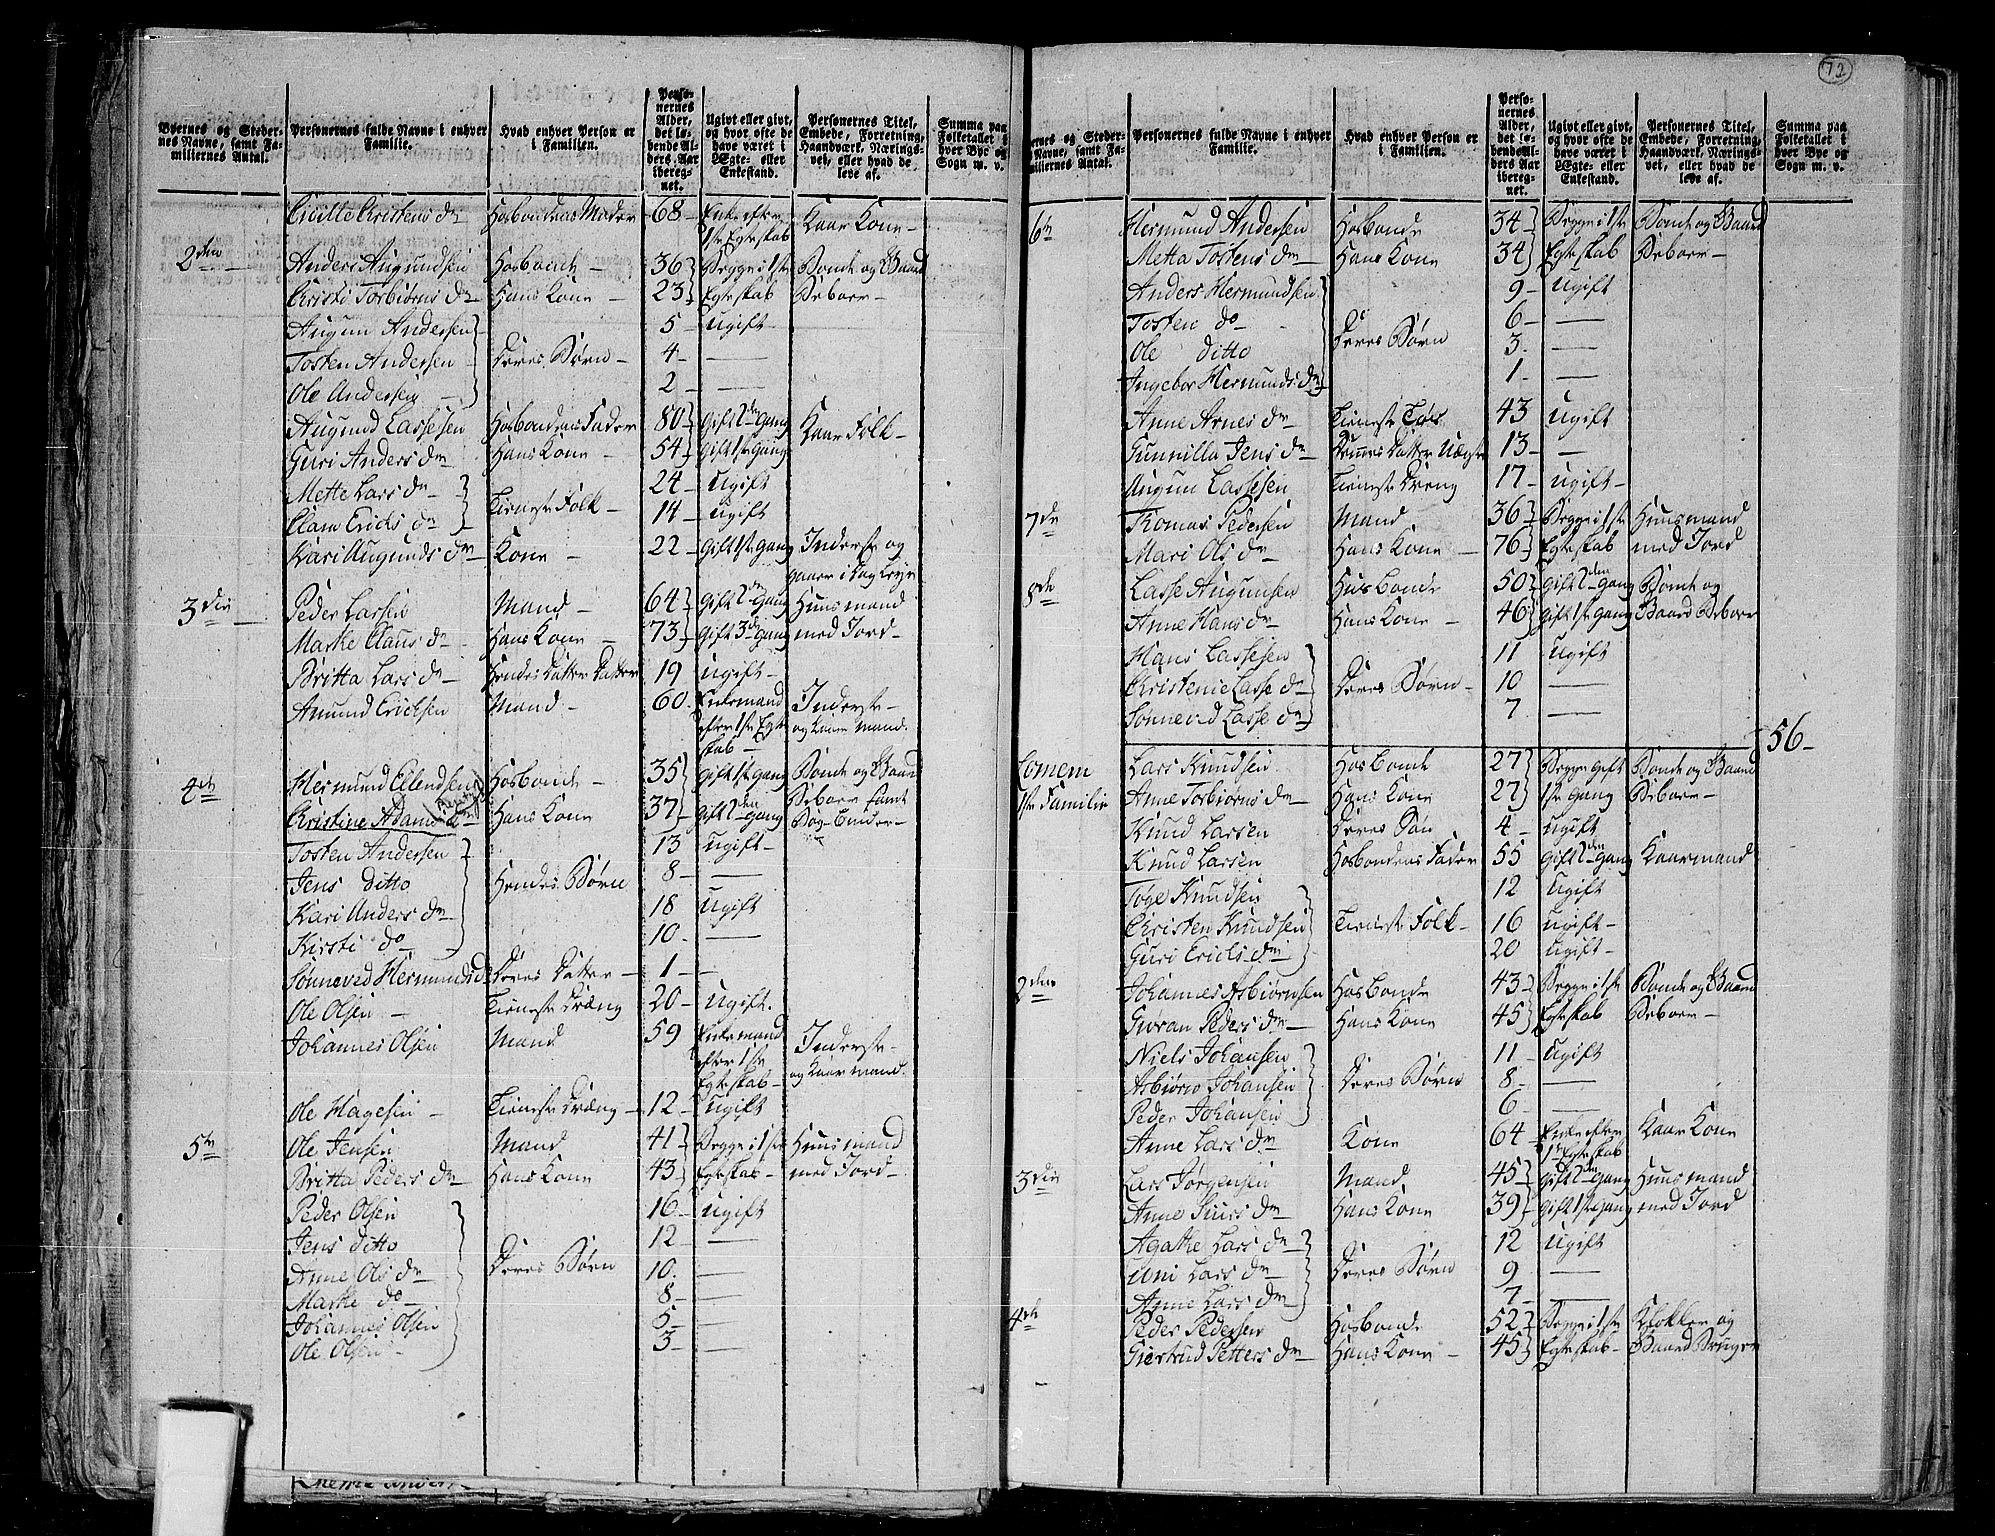 72
Byernes og Steder-
nes Navne, samt Fa-
miliernes Antal.
Personernes fulde Navne i enhver
Familie.
Hvad enhver Person er
i Familien.
Perso-
nernes
Alder,
det lø-
bende Al-
ders Aar
ibereg-
net.
Ugivt eller givt,
og hvor ofte de
have været i
Ægte- eller
Enkestand.
Personernes Titel,
Embede, Forretning,
Haandværk, Nærings-
vei, eller hvad de
leve af.
Summa paa
Folketallet i
hver Bye og
Sogn m. v.
Cicille Cristens Dr Hosbondens Moder 68 Enke efter Kaar Kone
1ste Egteskab
2den Anders Augundsen Hosbonde 36 Begge i 1ste Bonde og Gaard
Christi Torbiørns Dr Hans Kone 23 Egteskab Beboer
Augun Andersen 5 ugift
Tosten Andersen Deres Børn 4
Ole Andersen 2
Augund Lassesen Hosbondens Fader 80 Gift 2den Gang Kaar Folk
Guri Anders Dr Hans Kone 54 Gift 1ste Gang
Mette Lars Dr Tieneste Folk 24 ugift
Clara Erichs Dr 14 ugift
Kari Augunds Dr Kone 22 Gift 1ste Gang Inderste og
gaaer i Dag Leye
3die Peder Lassen Mand 64 Gift 2den Gang Huusmand
Marthe Claus Dr Hans Kone 73 Gift 3de Gang med Jord
Britta Lars Dr Hendes Datter Datter 19 ugift
Amund Erichsen Mand 60 Enkemand Inderste
efter 1ste Egte og Kaar Mand
skab
4de Hermund Ellendsen Hosbonde 35 Gift 1ste Gang Bonde og Gaard
Christine Adams Dr Hans Kone 37 Gift 2den Gang Beboer samt
Tosten Andersen 13 ugift
Jens ditto Hendes Børn 8
Kari Anders Dr 18 ugift
Kirsti do 10
Sønneved Hermunds d Deres Datter 1
Ole Olsen Tieneste Dræng 20 ugift
Johannes Olsen Mand 59 Enkemand Inderste
efter 1ste og Kaar mand
Egteskab
Ole Hagesen Tieneste Dræng 12 ugift
5te Ole Jensen Mand 41 Begge i 1ste Huusmand
Britta Peders Dr Hans Kone 43 Egteskab med Jord
Peder Olsen 16 ugift
Jens ditto 12
Anne Ols Dr Deres Børn 10
Marthe do 8
Johannes Olsen 5
Ole Olsen 3
rnes og Steder-
s Navne, samt Fa-
iliernes Antal.
Personernes fulde Navne i enhver
Familie.
Hvad enhver Person er
i Familien.
Perso-
nernes
Alder,
det lø-
bende Al-
ders Aar
ibereg-
net.
Ugivt eller givt,
og hvor ofte de
have været i
Ægte- eller
Enkestand.
Personernes Titel,
Embede, Forretning,
Haandværk, Nærings-
vei, eller hvad de
leve af.
Summa paa
Folketallet i
hver Bye og
Sogn m. v.
6te Hermund Andersen Hosbonde 34 Begge i 1ste Bonde og Gaard
Metta Tostens Dr Hans Kone 34 Egteskab Beboer
Anders Hermundsen 9 ugift
Tosten do 6
Ole ditto Deres Børn 3
Ingebor Hermunds Dr 1
Anne Arnes Dr Tieneste Tøs 43 ugift
Gunnilla Jens Dr Dennes Datter Uægte 13
Augun Lassesen Tieneste Dreng 17 ugift
7de Thomas Pedersen Mand 36 Begge i 1ste Huusmand
Mari Ols Dr Hans Kone 76 Egteskab med Jord
8de Lasse Augunsen Husbonde 50 Gift 2den Gang Bonde og
Anne Hans Dr Hans Kone 46 Gift 1ste Gang Gaard Beboer
Hans Lassesen 11 ugift
Christenie Lasse Dr Deres Børn 10
Sønneved Lasse Dr 7
56
Lomem Lars Knudsen Hosbonde 27 Begge Gift Bonde og Gaard
1ste Familie Anne Torbiørns Dr Hans Kone 27 1ste Gang Beboer
Knud Larsen Deres Søn 4 ugift
Knud Larsen Hosbondens Fader 55 Gift 2den Gang Kaarmand
Tøge Knudsen 12 ugift
Christen Knudsen Tieneste Folk 16 ugift
Guri Erichs Dr 20 ugift
2den Johannes Asbiørnsen Hosbonde 43 Begge i 1ste Bonde og Gaard
Giøran Peders Dr Hans Kone 45 Egteskab Beboer
Niels Johansen 11 ugift
Asbiørn Johansen Deres Børn 8
Peder Johansen 6
Anne Lars Dr Kone 64 Enke efter Kaar Kone
1te Egteskab
3die Lars Jørgensen Mand 45 Gift 2den Gang Huusmand
Anne Siurs Dr Hans Kone 39 Gift 1ste Gang med Jord
Agathe Lars Dr 12 ugift
Uni Lars Dr Deres Børn 9
Anne Lars Dr 7
4de Peder Pedersen Hosbonde 52 Begge i 1ste Klokker og
Giertrud Petters Dr Hans Kone 45 Egteskab Gaard Bruger